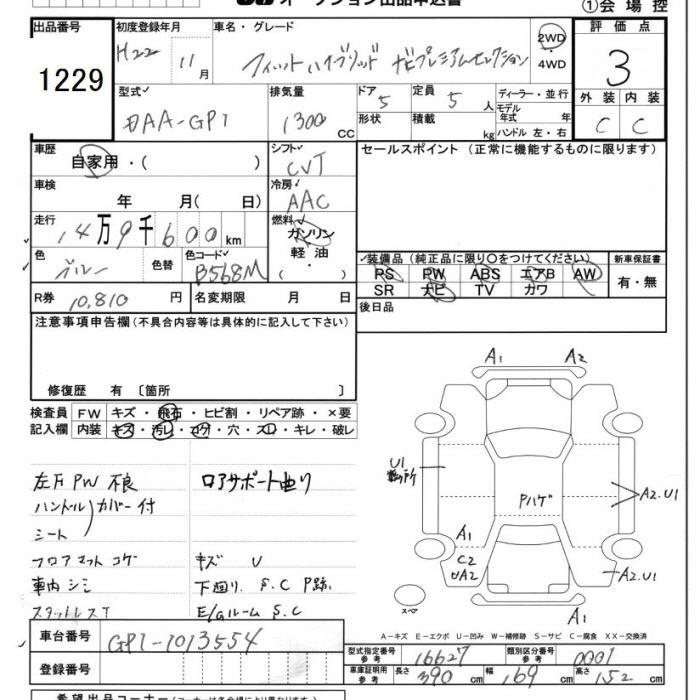 オークション出品申込書
①会場控
出品番号 1229
初度登録年月 H22 11月
車名・グレード フィットハイブリッド ナビプレミアムセレクション
2WD・4WD
評価点 3
外装 C 内装 C
型式 DAA-GP1
排気量 1300 CC
ドア 5 形状
定員 5人 積載 kg
ディーラー・並行
モデル年式 年
ハンドル 左・右
車歴 自家用・( )
シフト CVT
セールスポイント (正常に機能するものに限ります)
車検 年 月( 日)
冷房 AAC
走行 14万9千600km
燃料 ガソリン 軽油・( )
色 ブルー 色替 色コード B568M
✓装備品 (純正品に限り○をつけてください)
PS PW ABS エアB AW
SR ナビ TV カワ
新車保証書 有・無
R券 10,810円 名変期限 月 日
後日品
注意事項申告欄 (不具合内容等は具体的に記入して下さい)
修復歴 有 〔箇所 〕
検査員記入欄
FW キズ・飛石・ヒビ割・リペア跡・×要
内装 キズ・汚レ・コゲ・穴・スレ・キレ・破レ
左万 PW 不良 ロアサポート曲り
ハンドル
シート カバー付
フロアマット コゲ キズ U
車内シミ 下廻り S.C P跡
スタッドレスT E/gルーム S.C
A1 A2
U1
Pハゲ
A2.U1
A1
C2
UA2
A2.U1
A1
スペア
A−キズ E−エクボ U−凹み W−補修跡 S−サビ C−腐食 XX−交換済
車台番号 GP1-1013554
登録番号
型式指定番号 参考 16627 類別区分番号 参考 0001
車庫証明用 参考 長さ 390cm 幅 169cm 高さ 152cm
希望出品コーナー